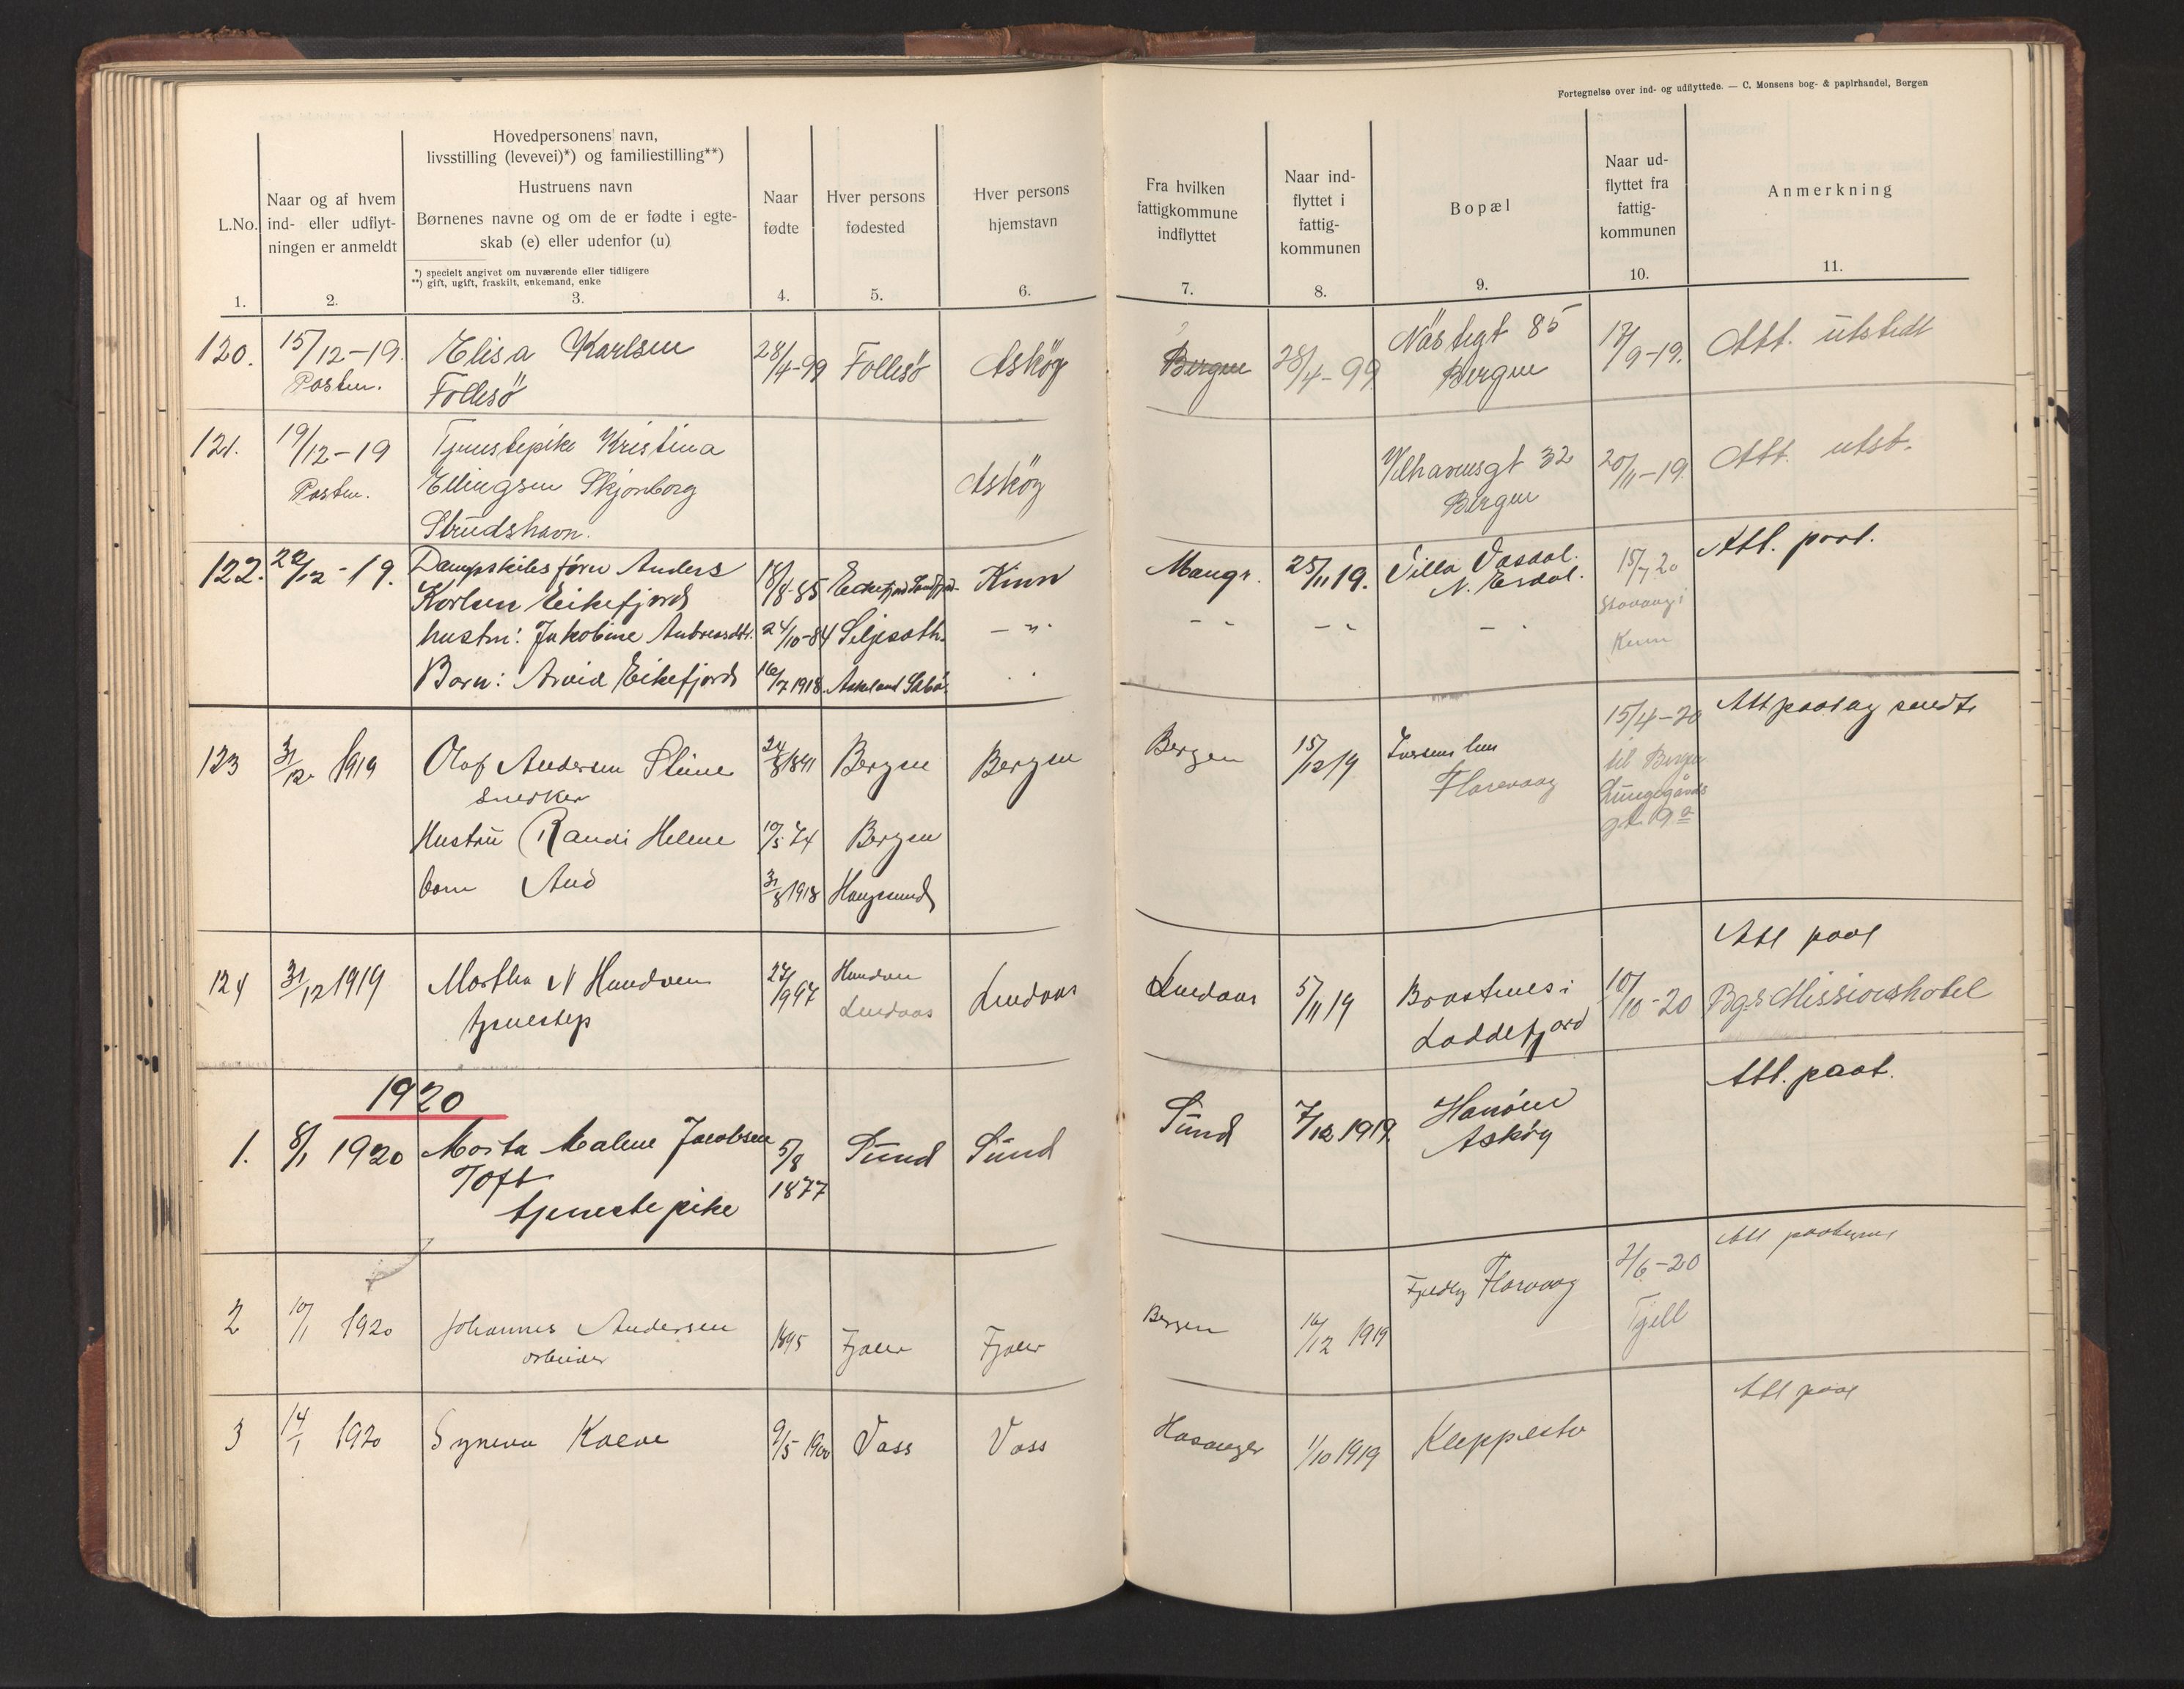 Fortegnelse over ind- og udflyttede. — C. Monsens bog- & papirhandel, Bergen
L.No.
1.
Naar og af hvem
ind- eller udflyt-
ningen er anmeldt
2.
Hovedpersonens navn,
livsstilling (levevei)*) og familiestilling**)
Hustruens navn
Børnenes navne og om de er fødte i egte-
skab (e) eller udenfor (u)
*) specielt angivet om nuværende eller tidligere
**) gift, ugift, fraskilt, enkemand, enke
3.
Naar
fødte
4.
Hver persons
fødested
5.
Hver persons
hjemstavn
6.
Fra hvilken
fattigkommune
indflyttet
7.
Naar ind-
flyttet i
fattig-
kommunen
8.
Bopæl
9.
Naar ud-
flyttet fra
fattig-
kommunen
10.
Anmerkning
11.
120. 15/12-19. Elisa Karlsen 28/4-99 Follesö Asköy Bergen 28/4-99 85 /9-19. Att. utstedt
Posten. Follesö Bergen
121. 19/12-19 Tjenestepike Kristina 32 20/11-19 Att. utst.
Posten. Ellingsen Skjonborg Asköy Bergen
Strudshavn.
122. 22/12-19. Dampskibsfører Anders 18/8-85 Kinn Mangr. 25/11 19. Villa Vasdal 15/7 20 Att. paat.
Karlsen Eikefjord N. Erdal.
hustru: Jakobine Andreasdtr. 24/10-84 - " - - - - - - Kinn
Barn: Arvid Eikefjord 16/7 1918
123 31/12 1919 Olaf Andersen Bergen Bergen Bergen 15/12 19 15/4-20 Att paatag sendt
snedker Florevaag til Bergen
Lungegårds
gt. 9a
Hustru Randi Helene 10/5 74 Bergen
barn Aud 31/8 1918 Haugesund
124 31/12 1919 Martha N Hundven Hundven Lindaas Lindaas 5/11 19 10/10-20 Att paat
tjenestep Lindaas Loddefjord Bgs Missionshotel
1920
1. 8/1 1920 Marta Malene Jacobsen 5/8 Sund Sund Sund 7/12 1919. Hanöen Att. paat.
Toft 1877 Asköy
tjenestepike
2 10/1 1920 Johannes Andersen 1895 Fjaler Fjaler Bergen 16/12 1919 Florvaag 2/6-20 Att
arbeider Fjell
3 14/1 1920 Syneva 9/5 1900 Voss Voss 1/10 1919 Kleppestø Att paat